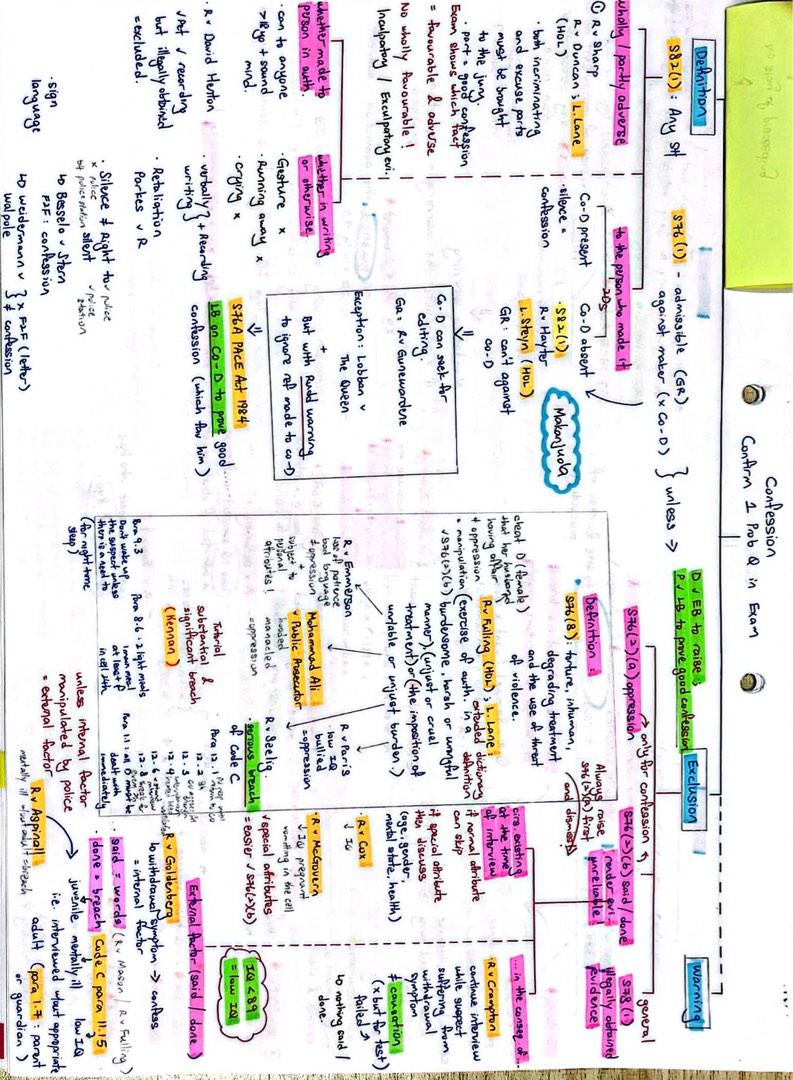 Confession
Confirm 1 Prob Q in Exam
Definition
S82(1) : Any st
S76(1) - admissible (GR)
against maker (x Co-D)
} unless →
D √ EB to raise ;
P √ LB to prove good confession
Exclusion
Warning
wholly / partly adverse
① R v Sharp
R v Duncan ; L. Lane
(HOL)
· both incriminating
and excuse parts
must be brought
to the jury.
· part = good confession
= favourable & adverse
Exam shows which fact
No wholly favourable !
Inculpatory / Exculpatory evi.
to the person who made it
2Ds
Co-D present
· silence =
confession
Co-D absent
· S82(1)
R v Hayter
L. Steyn (HOL)
GR : can't against
co-D
Makanjuola
Co-D can seek for
editing.
Ga : R v Gunewardene
Exception : Lobban v
The Queen
+
But with Rudd warning
to ignore ref made to co-D
S76A PACE Act 1984
LB on Co-D to prove good
confession (which fav him)
whether made to
person in auth.
· can to anyone
→ 18yo + sound
mind.
· R v David Henton
√ Act √ recording
but illegally obtained
= excluded.
whether in writing
or otherwise
· Gesture x
· Running away x
· crying x
· verbally } + Recording
writing
· Retaliation
Parkes v R
· Silence ≠ Right to √ police
x police
but police station silent √ police
station
↳ Bessela v Stern
F2F : confession
↳ Weidermann v } x F2F (letter)
walpole } ≠ confession
· sign
language
S76(2)(a) oppression
→ only for confession
Always raise
S76(2)(a) first
and dismiss
Definition :
S76(8) : torture, inhuman,
degrading treatment
and the use of threat
of violence.
· R v Fulling (HOL) ; L. Lane :
extended dictionary
definition
cheat D (female)
that her husband
having affair
≠ oppression
= manipulation
√ S76(2)(b)
(exercise of auth. in a
burdensome, harsh or wrongful
manner), (unjust or cruel
treatment) or (the imposition of
unfair or unjust burden.)
R v Emmerson
loss of patience
bad language
≠ oppression
subject to
personal
attributes !
Mohammad Ali
v Public Prosecutor
hooded
manacled
= oppression
R v Paris
low IQ
bullied
= oppression
R v Seelig
· serious breach
of Code C
Tutorial
substantial &
significant breach
(Kennan)
Para 9.3
Don't wake up
the suspect unless
there is a need to
(for night time
sleep)
Para 8.6 : 2 light meals
1 main meal
at least
in cell 24h
Para 12.
12.2
12.3
12.4
12.6
12.8
Para 11.1 : all D must be
dealt with
immediately
S76(2)(b) said / done
render evi.
unreliable !
cirs. existing
at the time
of interview
if normal attribute
can skip
if special attribute
then discuss
(age, gender,
mental state, health)
R v Cox
↓ IQ
· R v McGovern
↓ IQ pregnant
vomitting in the cell
√ special attributes
= easier √ S76(2)(b)
... in the conseq of ...
· R v Crampton
continue interview
while suspect
suffering from
withdrawal
symptom
≠ causation
failed
(x but for test)
↳ nothing said /
done.
IQ < 89
= low IQ
External factor (said / done)
R v Goldenberg
↳ withdrawal symptom → confess
= internal factor
unless internal factor
manipulated by police
= external factor
· said = words (R v Mason / R v Fulling)
· done = breach Code C para 11.15
juvenile, mentally ill, low IQ
i.e. interviewed w/out appropriate
adult (para 1.7 : parent
or guardian)
R v Aspinall
mentally ill w/out adult = breach
S78(1)
general
illegally obtained
evidence